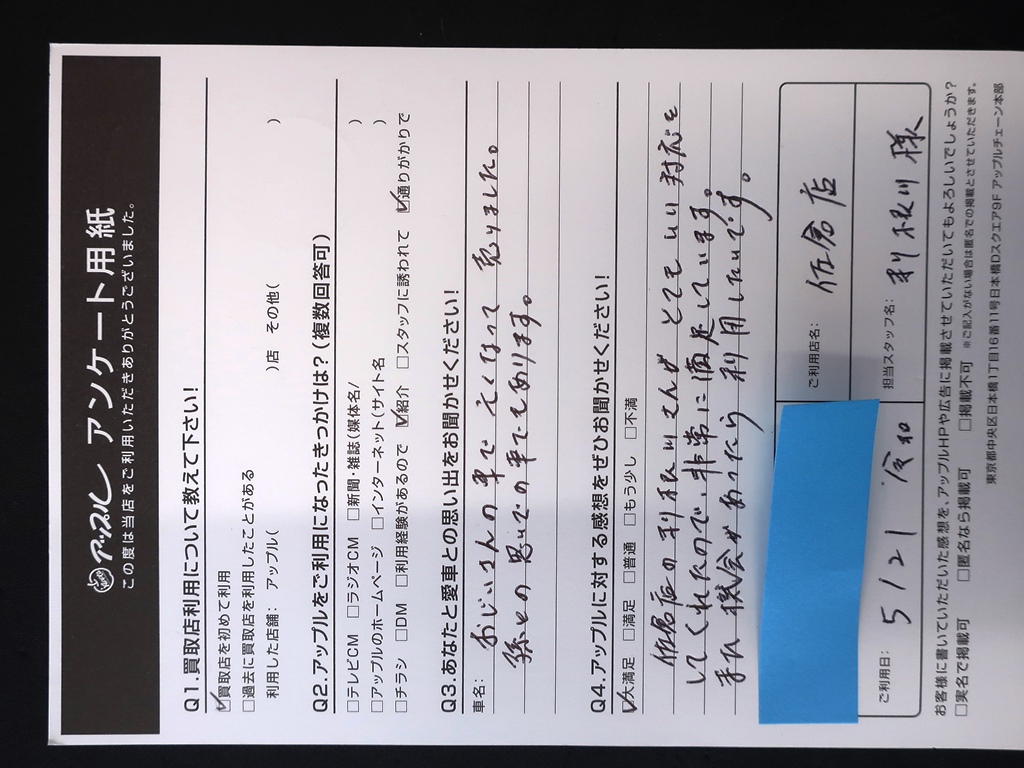 アップル アンケート用紙
この度は当店をご利用いただきありがとうございました。
Q1.買取店利用について教えて下さい!
☑買取店を初めて利用
□過去に買取店を利用したことがある
利用した店舗: アップル( )店 その他( )
Q2.アップルをご利用になったきっかけは?(複数回答可)
□テレビCM □ラジオCM □新聞・雑誌(媒体名/ )
□アップルのホームページ □インターネット(サイト名 )
□チラシ □DM □利用経験があるので ☑紹介 □スタッフに誘われて ☑通りがかりで
Q3.あなたと愛車との思い出をお聞かせください!
車名:
おじいさんの車で 亡くなって 売りました。
孫との思いでの車でもあります。
Q4.アップルに対する感想をぜひお聞かせください!
☑大満足 □満足 □普通 □もう少し □不満
佐倉店の利根川さんが とても いい 対応を
してくれたので、非常に満足しています。
また 機会があったら 利用したいです。
ご利用店名: 佐倉店
ご利用日: 5/21 令和
担当スタッフ名: 利根川様
お客様に書いていただいた感想を、アップルHPや広告に掲載させていただいてもよろしいでしょうか?
□実名で掲載可 □匿名なら掲載可 □掲載不可 ※ご記入がない場合は匿名での掲載とさせていただきます。
東京都中央区日本橋1丁目16番11号日本橋Dスクエア9F アップルチェーン本部